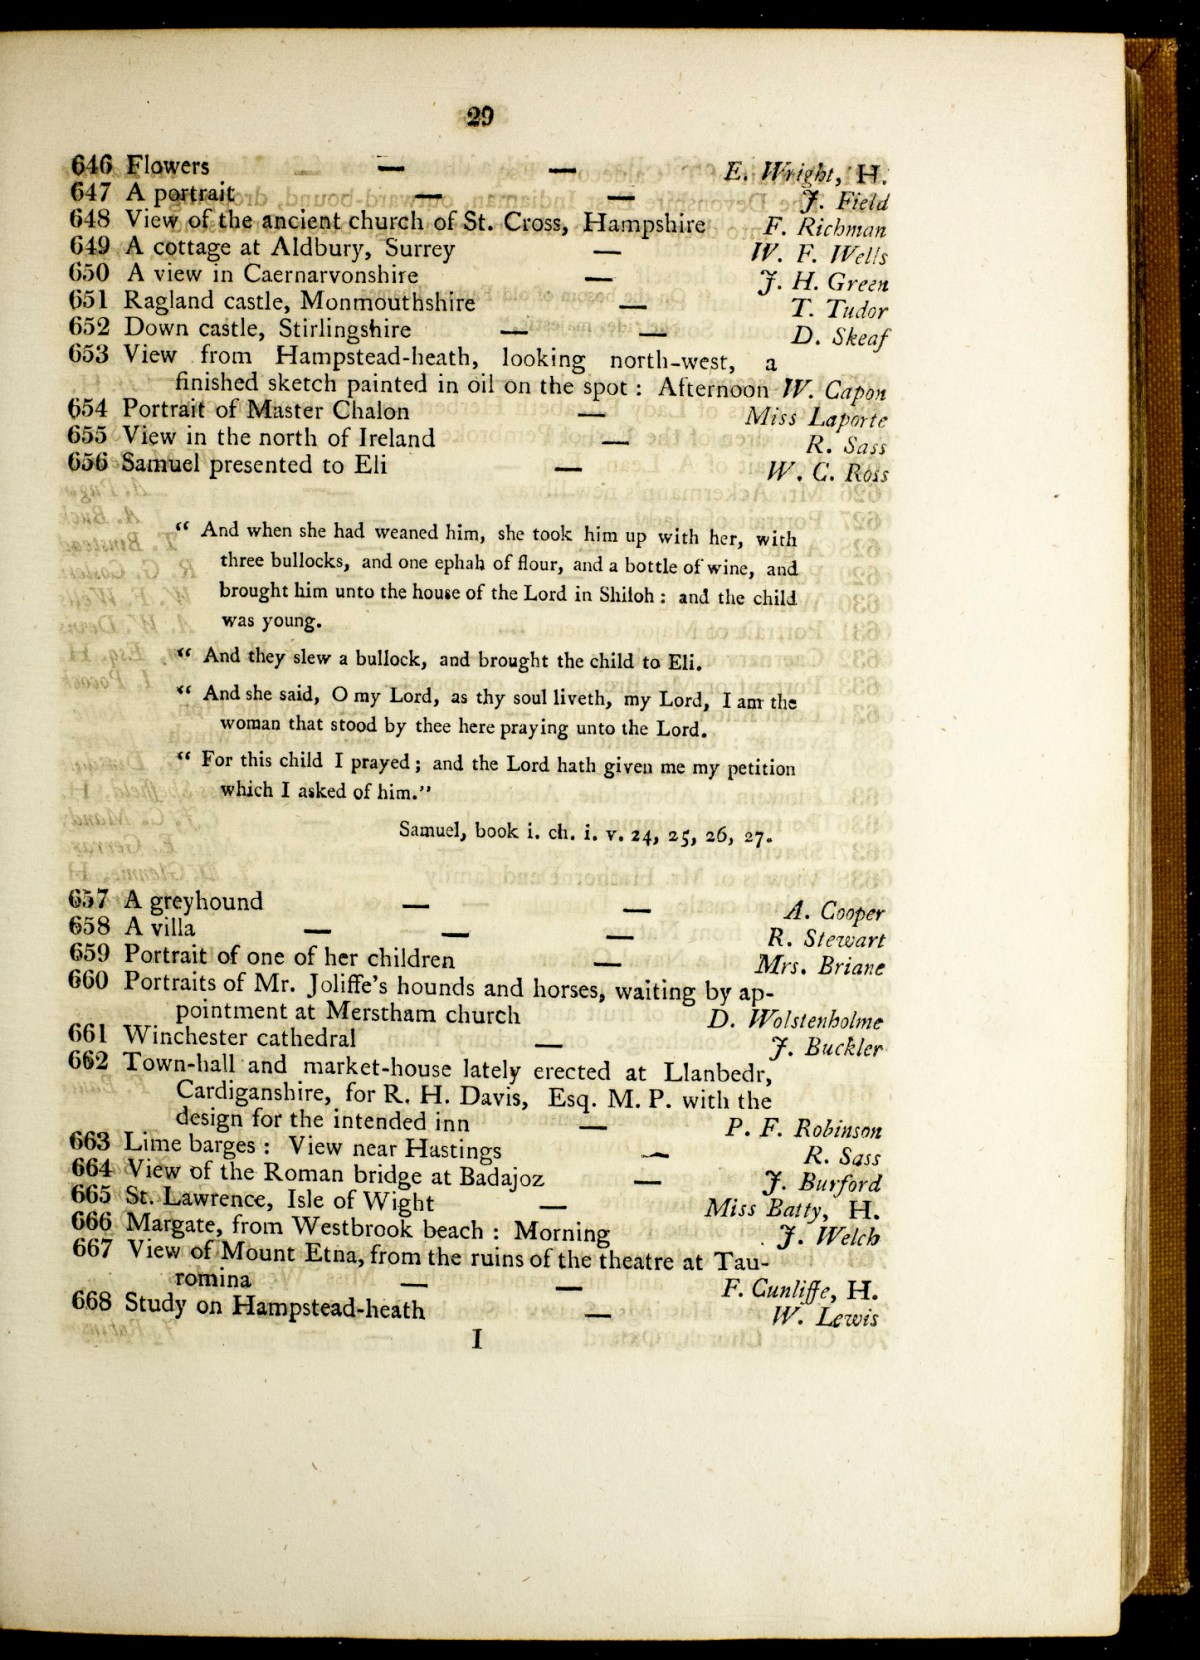 29
646 Flowers — — E. Wright, H.
647 A portrait — — J. Field
648 View of the ancient church of St. Cross, Hampshire F. Richman
649 A cottage at Aldbury, Surrey — W. F. Wells
650 A view in Caernarvonshire — J. H. Green
651 Ragland castle, Monmouthshire — T. Tudor
652 Down castle, Stirlingshire — — D. Skeaf
653 View from Hampstead-heath, looking north-west, a
finished sketch painted in oil on the spot : Afternoon W. Capon
654 Portrait of Master Chalon — Miss Laporte
655 View in the north of Ireland — R. Sass
656 Samuel presented to Eli — W. C. Ross
“ And when she had weaned him, she took him up with her, with
three bullocks, and one ephah of flour, and a bottle of wine, and
brought him unto the house of the Lord in Shiloh : and the child
was young.
“ And they slew a bullock, and brought the child to Eli.
“ And she said, O my Lord, as thy soul liveth, my Lord, I am the
woman that stood by thee here praying unto the Lord.
“ For this child I prayed ; and the Lord hath given me my petition
which I asked of him.”
Samuel, book i. ch. i. v. 24, 25, 26, 27.
657 A greyhound — — A. Cooper
658 A villa — — — R. Stewart
659 Portrait of one of her children — Mrs. Briane
660 Portraits of Mr. Joliffe’s hounds and horses, waiting by ap-
pointment at Merstham church D. Wolstenholme
661 Winchester cathedral — J. Buckler
662 Town-hall and market-house lately erected at Llanbedr,
Cardiganshire, for R. H. Davis, Esq. M. P. with the
design for the intended inn — P. F. Robinson
663 Lime barges : View near Hastings — R. Sass
664 View of the Roman bridge at Badajoz — J. Burford
665 St. Lawrence, Isle of Wight — Miss Batty, H.
666 Margate, from Westbrook beach : Morning J. Welch
667 View of Mount Etna, from the ruins of the theatre at Tau-
romina — — F. Cunliffe, H.
668 Study on Hampstead-heath — W. Lewis
I